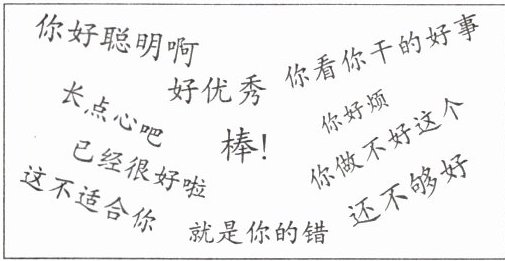 你好聪明啊
你看你干的好事
好优秀
长点心吧
你好烦
棒!
已经很好啦
你做不好这个
这不适合你
还不够好
就是你的错